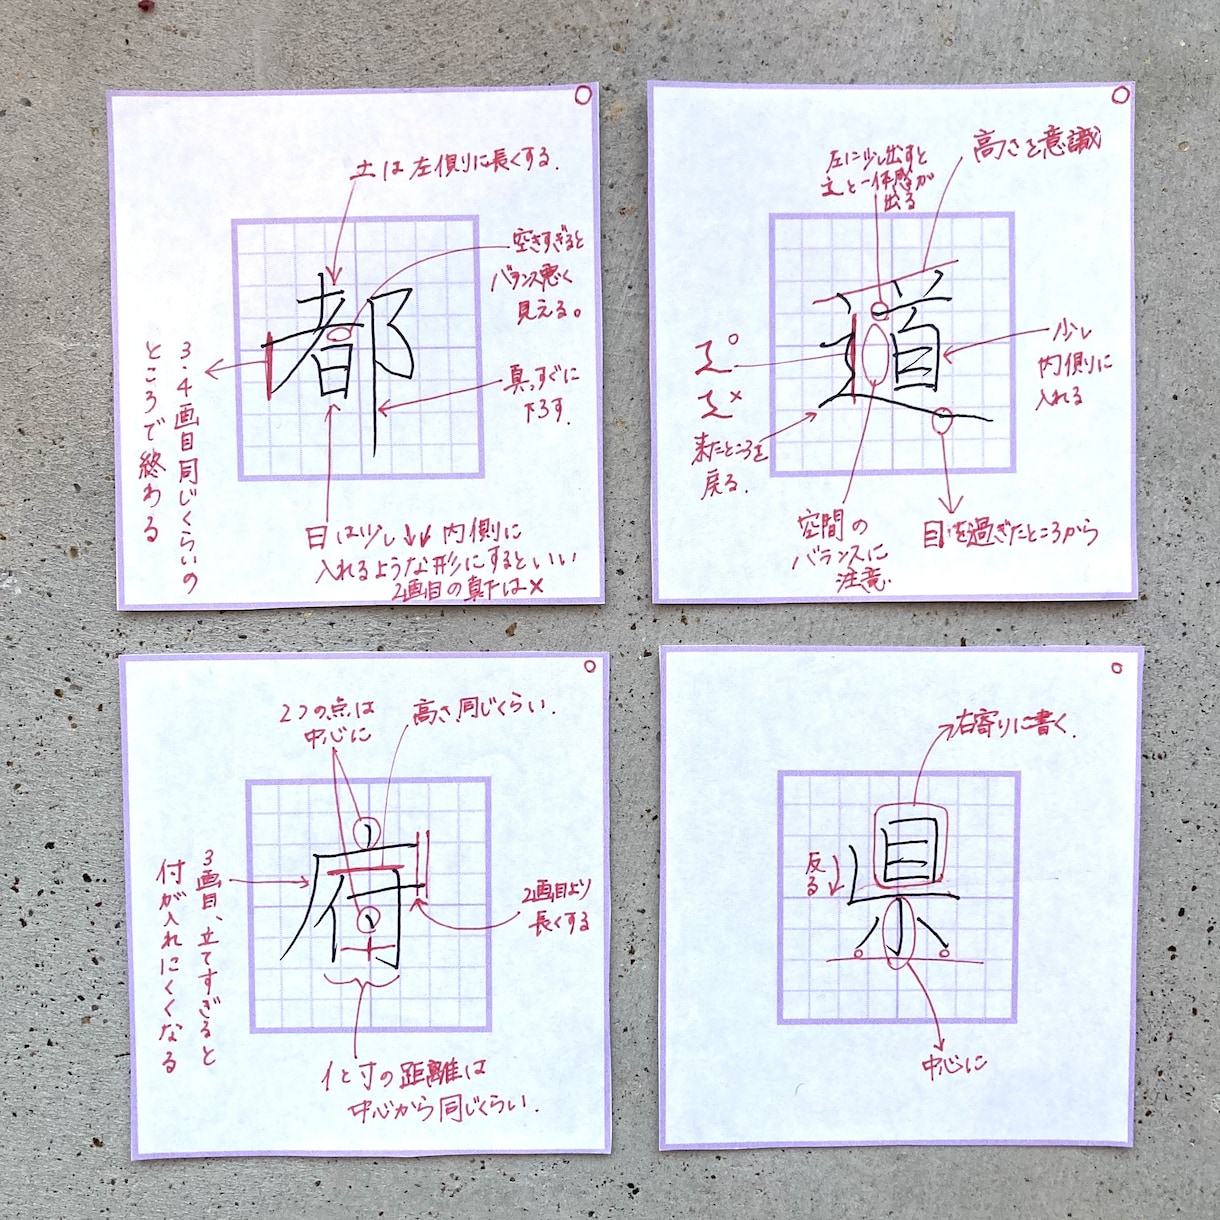 土は左側に長くする.
空きすぎると
バランス悪く
見える。
都
3.4画目同じくらいの
ところで終わる
真っすぐに
下ろす.
日は少し↓↓内側に
入れるような形にするといい
2画目の真下は×
左に少し出すと
辶と一体感が
出る
高さを意識
道
少し
内側に
入れる
来たところを
戻る.
空間の
バランスに
注意.
目を過ぎたところから
2つの点は
中心に
高さ同じくらい.
府
3画目、立てすぎると
付が入れにくくなる
2画目より
長くする
亻と寸の距離は
中心から同じくらい.
右寄りに書く.
県
反る
中心に